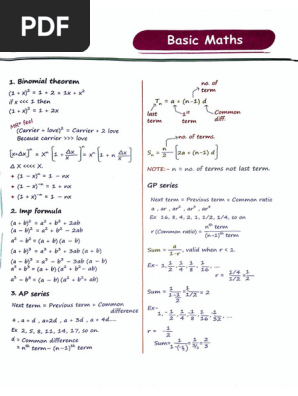 PDF
Basic Maths
1. Binomial theorem
(1 + x)² = 1 + 2 × 1x + x²
if x <<< 1 then
(1 + x)² = 1 + 2x
MR* feel
(Carrier + love)² = Carrier + 2 love
Because carrier >>> love
[x+Δx]ⁿ = Xⁿ [1 + Δx/x]ⁿ = xⁿ [1 + n Δx/x]
Δ X <<<< X.
• (1 − x)ⁿ = 1 − nx
• (1 − x)⁻ⁿ = 1 + nx
• (1 + x)⁻ⁿ = 1 − nx
2. Imp formula
(a + b)² = a² + b² + 2ab
(a − b)² = a² + b² − 2ab
a² − b² = (a + b) (a − b)
(a + b)³ = a³ + b³ + 3ab (a + b)
(a − b)³ = a³ − b³ − 3ab (a − b)
a³ + b³ = (a + b) (a² + b² − ab)
a³ − b³ = (a − b) (a² + b² + ab)
3. AP series
Next term = Previous term + Common
difference
a , a + d , a+2d , a + 3d , a + 4d....
Ex 2, 5, 8, 11, 14, 17, so on.
d = Common difference
= nᵗʰ term − (n−1)ᵗʰ term
no. of
term
Tₙ = a + (n−1) d
last
term
1ˢᵗ
term
Common
diff.
no. of terms.
Sₙ = n/2 [2a + (n−1) d]
NOTE:- n = no. of terms not last term.
GP series
Next term = Previous term × Common ratio
a , ar , ar² , ar³ , ar⁴
Ex 16, 8, 4, 2, 1, 1/2, 1/4, so on
r (Common ratio) = nᵗʰ term/(n−1)ᵗʰ term
Sum = a/1-r , valid when r < 1.
Ex- 1, 1/2, 1/4, 1/8, 1/16, ...
r = 1/4/1/2 = 1/2
Sum = 1/1-1/2 = 1/1/2 = 2
Ex-
r = -1/2